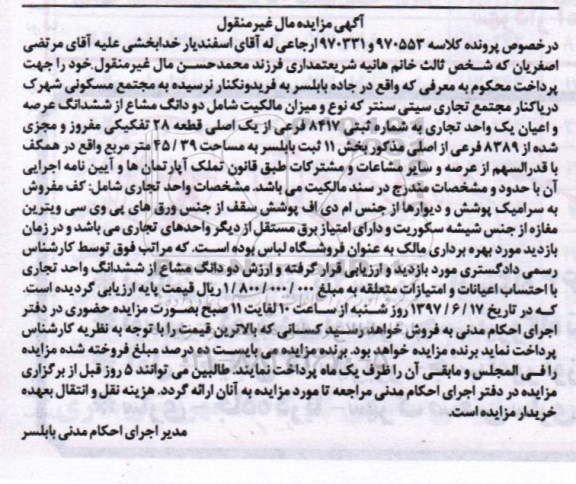 آگهی مزایده مال غیرمنقول
درخصوص پرونده کلاسه ۹۷۰۵۵۳ و ۹۷۰۳۳۱ ارجاعی له آقای اسفندیار خدابخشی علیه آقای مرتضی
اصغریان که شخص ثالث خانم هانیه شریعتمداری فرزند محمدحسن مال غیرمنقول خود را جهت
پرداخت محکوم به معرفی که واقع در جاده بابلسر به فریدونکنار نرسیده به مجتمع مسکونی شهرک
دریاکنار مجتمع تجاری سیتی سنتر که نوع و میزان مالکیت شامل دو دانگ مشاع از ششدانگ عرصه
و اعیان یک واحد تجاری به شماره ثبتی ۸۴۱۷ فرعی از یک اصلی قطعه ۲۸ تفکیکی مفروز و مجزی
شده از ۸۳۸۹ فرعی از اصلی مذکور بخش ۱۱ ثبت بابلسر به مساحت ۴۵/۳۹ متر مربع واقع در همکف
با قدرالسهم از عرصه و سایر مشاعات و مشترکات طبق قانون تملک آپارتمان ها و آیین نامه اجرایی
آن با حدود و مشخصات مندرج در سند مالکیت می باشد. مشخصات واحد تجاری شامل: کف مفروش
به سرامیک پوشش و دیوارها از جنس ام دی اف پوشش سقف از جنس ورق های پی وی سی ویترین
مغازه از جنس شیشه سکوریت و دارای امتیاز برق مستقل از دیگر واحدهای تجاری می باشد و در زمان
بازدید مورد بهره برداری مالک به عنوان فروشگاه لباس بوده است. که مراتب فوق توسط کارشناس
رسمی دادگستری مورد بازدید و ارزیابی قرار گرفته و ارزش دو دانگ مشاع از ششدانگ واحد تجاری
با احتساب اعیانات و امتیازات متعلقه به مبلغ ۱/۸۰۰/۰۰۰/۰۰۰ ریال قیمت پایه ارزیابی گردیده است.
که در تاریخ ۱۳۹۷/۶/۱۷ روز شنبه از ساعت ۱۰ لغایت ۱۱ صبح بصورت مزایده حضوری در دفتر
اجرای احکام مدنی به فروش خواهد رسید کسانی که بالاترین قیمت را با توجه به نظریه کارشناس
پرداخت نماید برنده مزایده خواهد بود. برنده مزایده می بایست ده درصد مبلغ فروخته شده مزایده
را فی المجلس و مابقی آن را ظرف یک ماه پرداخت نمایند. طالبین می توانند ۵ روز قبل از برگزاری
مزایده در دفتر اجرای احکام مدنی مراجعه تا مورد مزایده به آنان ارائه گردد. هزینه نقل و انتقال بعهده
خریدار مزایده است.
مدیر اجرای احکام مدنی بابلسر